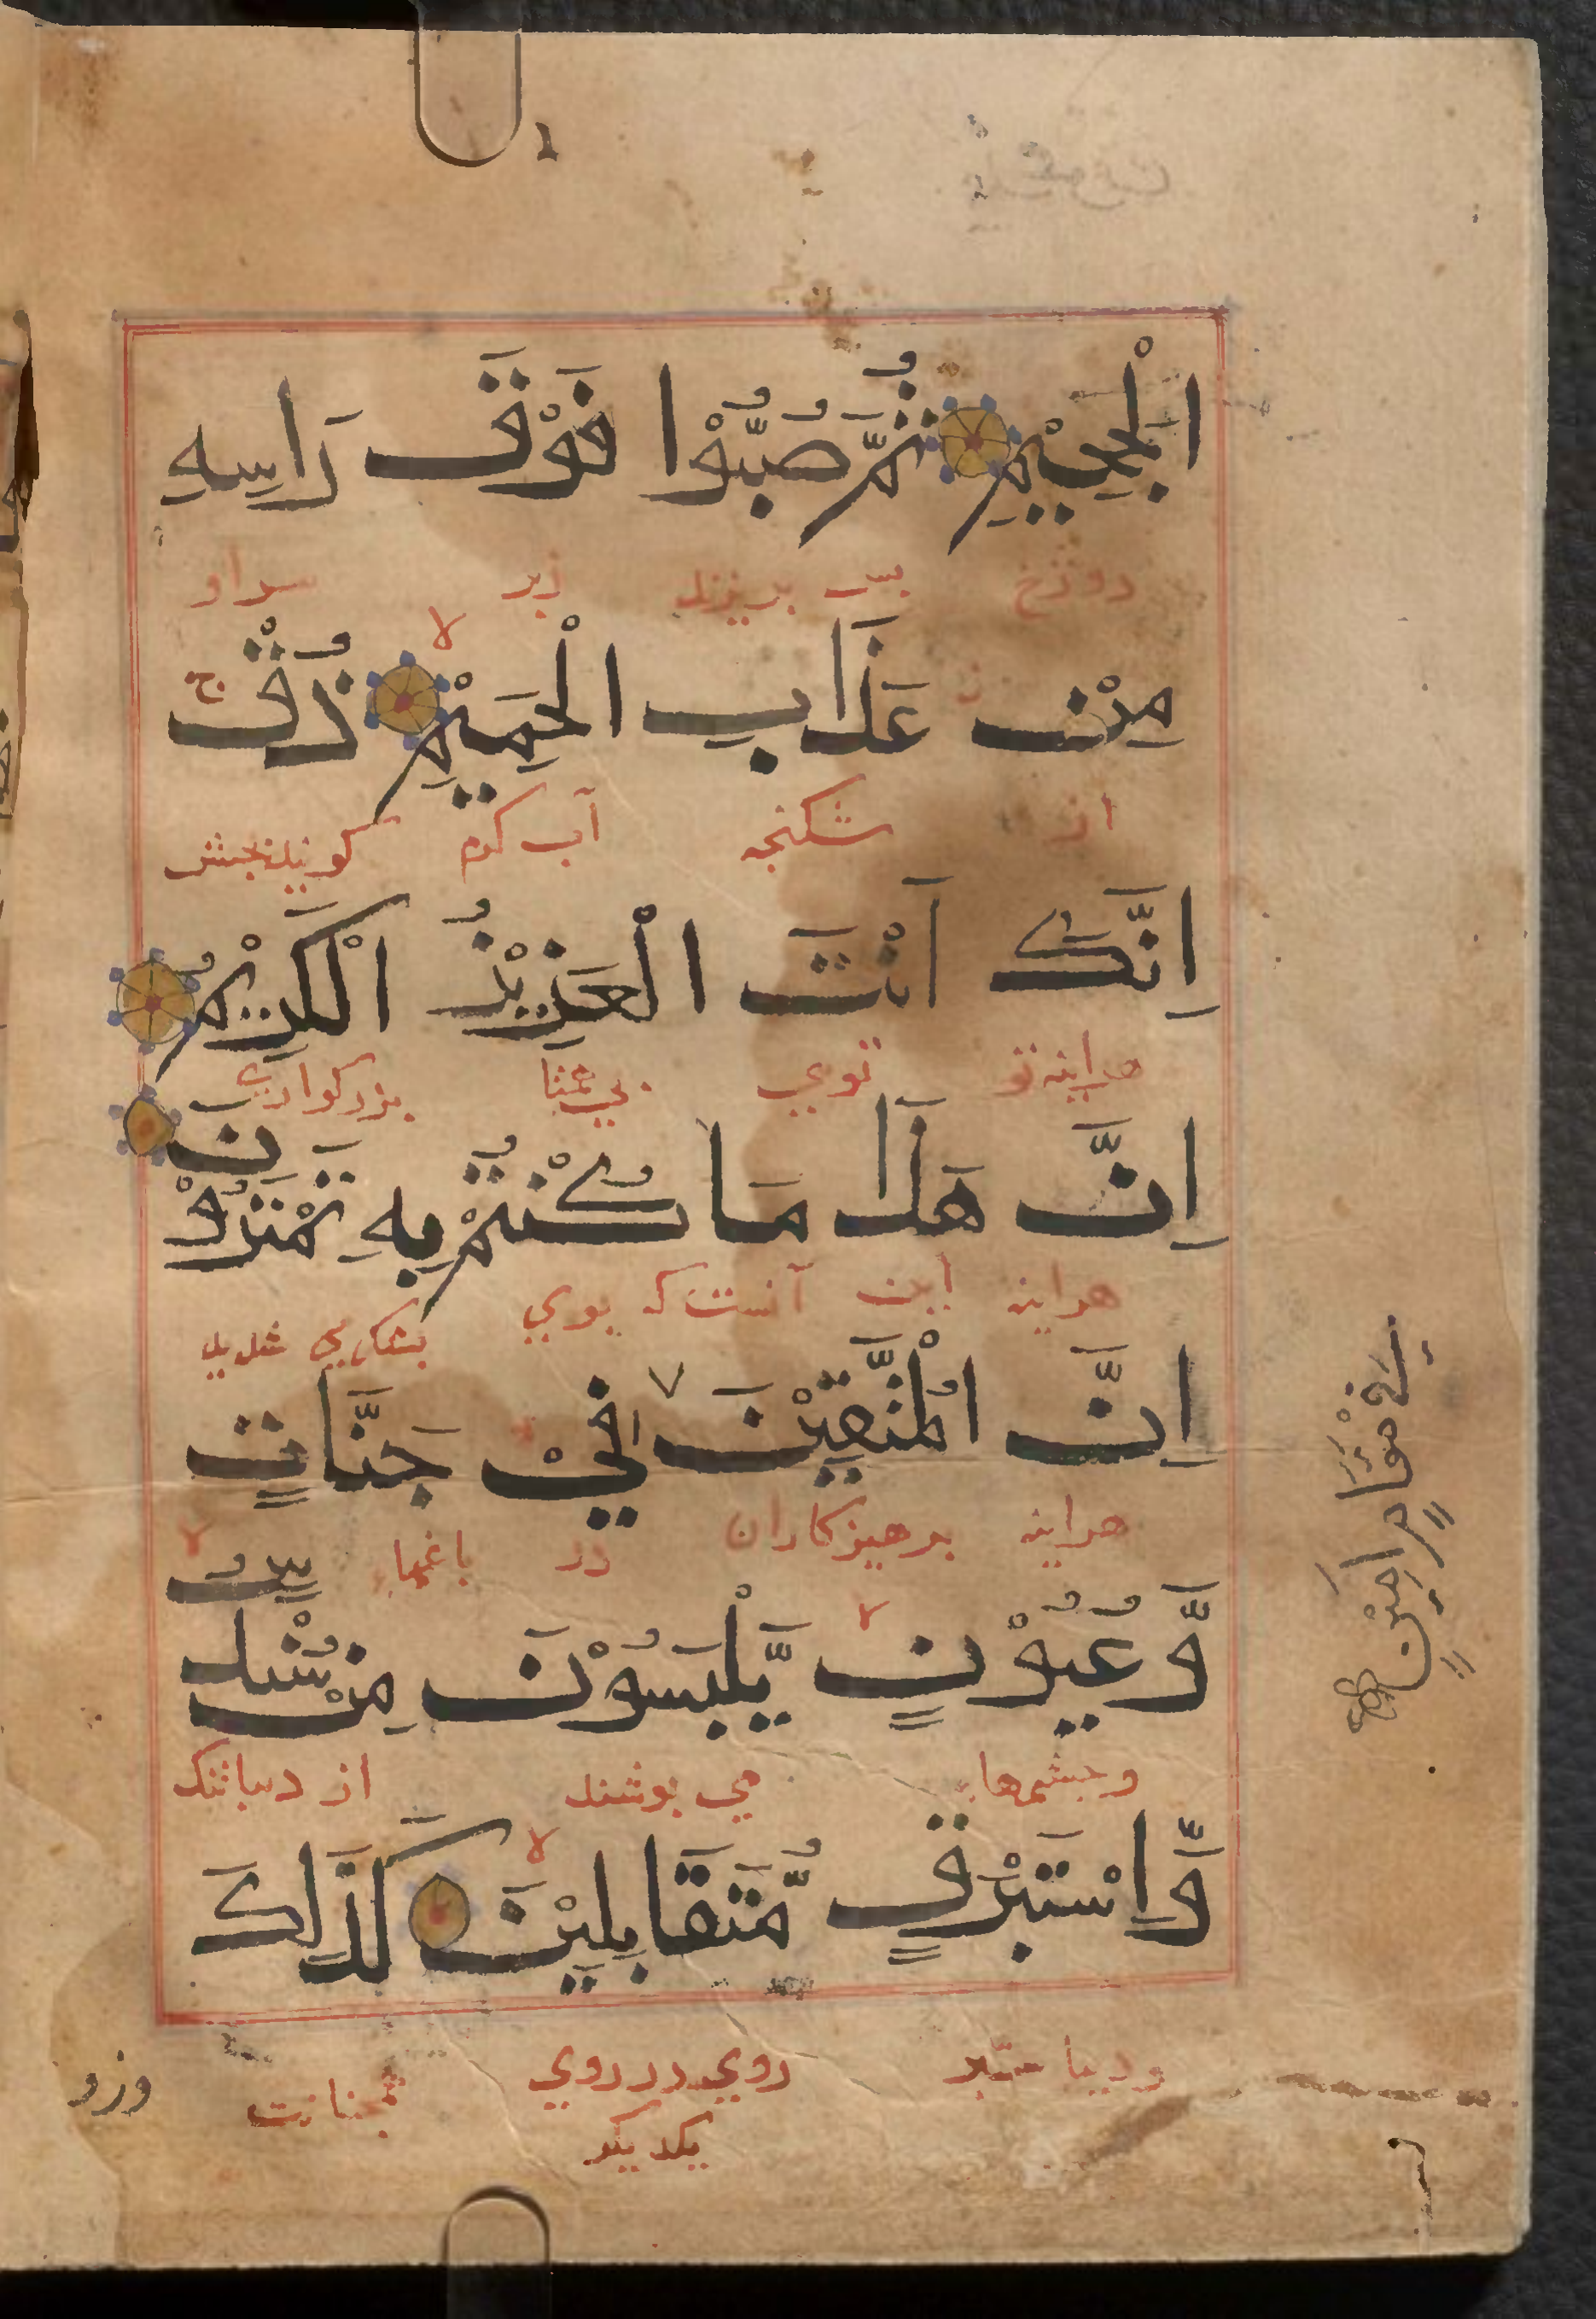 الْجَحِيْمِ ثُمَّ صُبُّوْا فَوْقَ رَاسِهِ
دوزخ بس بريزند زبر سر او
مِنْ عَذَابِ الْحَمِيْمِ ذُقْ
از شكنجه آب كرم كويند بچش
اِنَّكَ اَنْتَ الْعَزِيْزُ الْكَرِيْمُ
هراينه تو توي بي همتا بزركوار
اِنَّ هَذَا مَا كُنْتُمْ بِهِ تَمْتَرُوْنَ
هراينه اين آنست كه بوي بشك مي شديد
اِنَّ الْمُتَّقِيْنَ فِيْ جَنَّاتٍ
هراينه برهيزكاران در باغها
وَّعُيُوْنٍ يَّلْبَسُوْنَ مِنْ سُنْدُسٍ
وچشمها مي بوشند از ديبا تنك
وَّاِسْتَبْرَقٍ مُّتَقَابِلِيْنَ كَذَلِكَ
وديبا ستبر روي در روي همچنانست
يكديكر
وزو
فِي مَقَامٍ اَمِيْنٍ